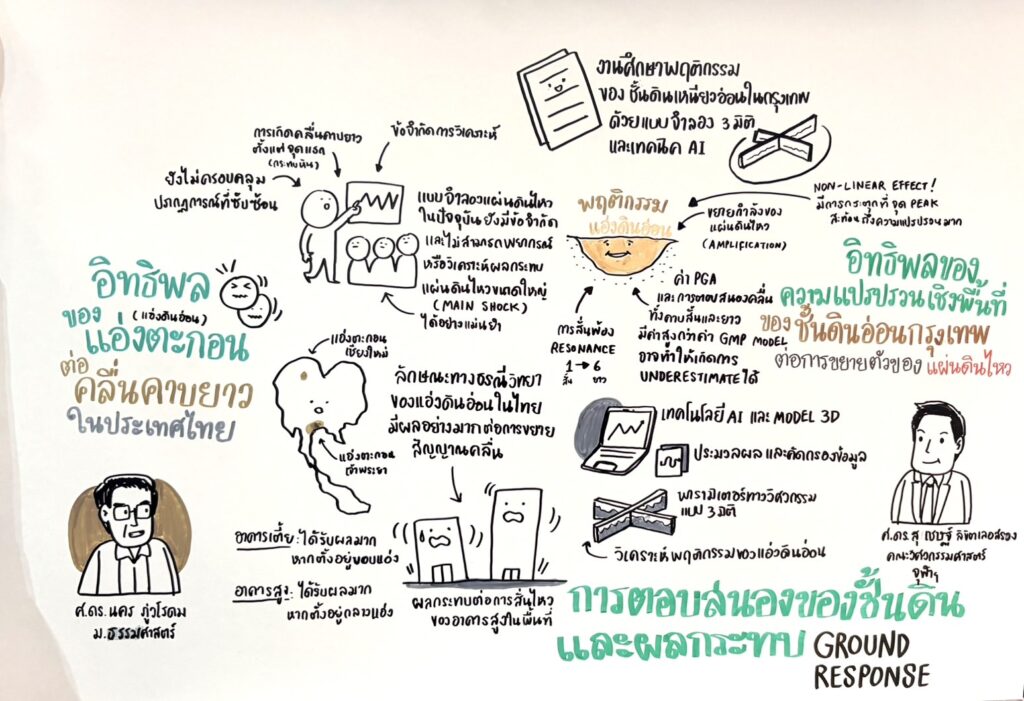 งานศึกษาพฤติกรรม
ของ ชั้นดินเหนียวอ่อนในกรุงเทพ
ด้วยแบบจำลอง 3 มิติ
และเทคนิค AI
การเกิดคลื่นคาบยาว
ตั้งแต่จุดแรก
(กระทบหิน)
ข้อจำกัดการวิเคราะห์
ยังไม่ครอบคลุม
ปรากฏการณ์ที่ซับซ้อน
แบบจำลองแผ่นดินไหว
ในปัจจุบันยังมีข้อจำกัด
และไม่สามารถพยากรณ์
หรือวิเคราะห์ผลกระทบ
แผ่นดินไหวขนาดใหญ่
(MAIN SHOCK)
ได้อย่างแม่นยำ
อิทธิพล
ของ (แอ่งดินอ่อน)
แอ่งตะกอน
ต่อ
คลื่นคาบยาว
ในประเทศไทย
แอ่งตะกอน
เชียงใหม่
แอ่งตะกอน
เจ้าพระยา
ลักษณะทางธรณีวิทยา
ของแอ่งดินอ่อนในไทย
มีผลอย่างมากต่อการขยาย
สัญญาณคลื่น
อาคารเตี้ย: ได้รับผลมาก
หากตั้งอยู่ขอบแอ่ง
อาคารสูง: ได้รับผลมาก
หากตั้งอยู่กลางแอ่ง
ผลกระทบต่อการสั่นไหว
ของอาคารสูงในพื้นที่
ศ.ดร.นคร ภู่วโรดม
ม.ธรรมศาสตร์
พฤติกรรม
แอ่งดินอ่อน
ขยายกำลังของ
แผ่นดินไหว
(AMPLIFICATION)
NON-LINEAR EFFECT!
มีการกระตุกที่จุด PEAK
สะท้อนถึงความแปรปรวนมาก
การสั่นพ้อง
RESONANCE
1 → 6
สั้น ยาว
ค่า PGA
และการตอบสนองคลื่น
ทั้งคาบสั้นและยาว
มีค่าสูงกว่าค่า GMP MODEL
อาจทำให้เกิดการ
UNDERESTIMATE ได้
อิทธิพลของ
ความแปรปรวนเชิงพื้นที่
ของ ชั้นดินอ่อนกรุงเทพ
ต่อการขยายตัวของ แผ่นดินไหว
เทคโนโลยี AI และ MODEL 3D
ประมวลผล และคัดกรองข้อมูล
พารามิเตอร์ทางวิศวกรรม
แบบ 3 มิติ
วิเคราะห์ พฤติกรรมของแอ่งดินอ่อน
ศ.ดร.สุ เชษฐ์ ลิขิตเลอสรวง
คณะวิศวกรรมศาสตร์
จุฬาฯ
การตอบสนองของชั้นดิน
และผลกระทบ GROUND
RESPONSE